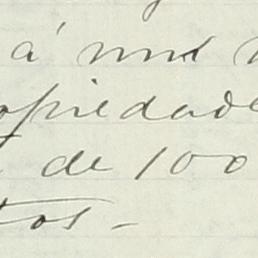 á mil
opiedade
de 100
tos -